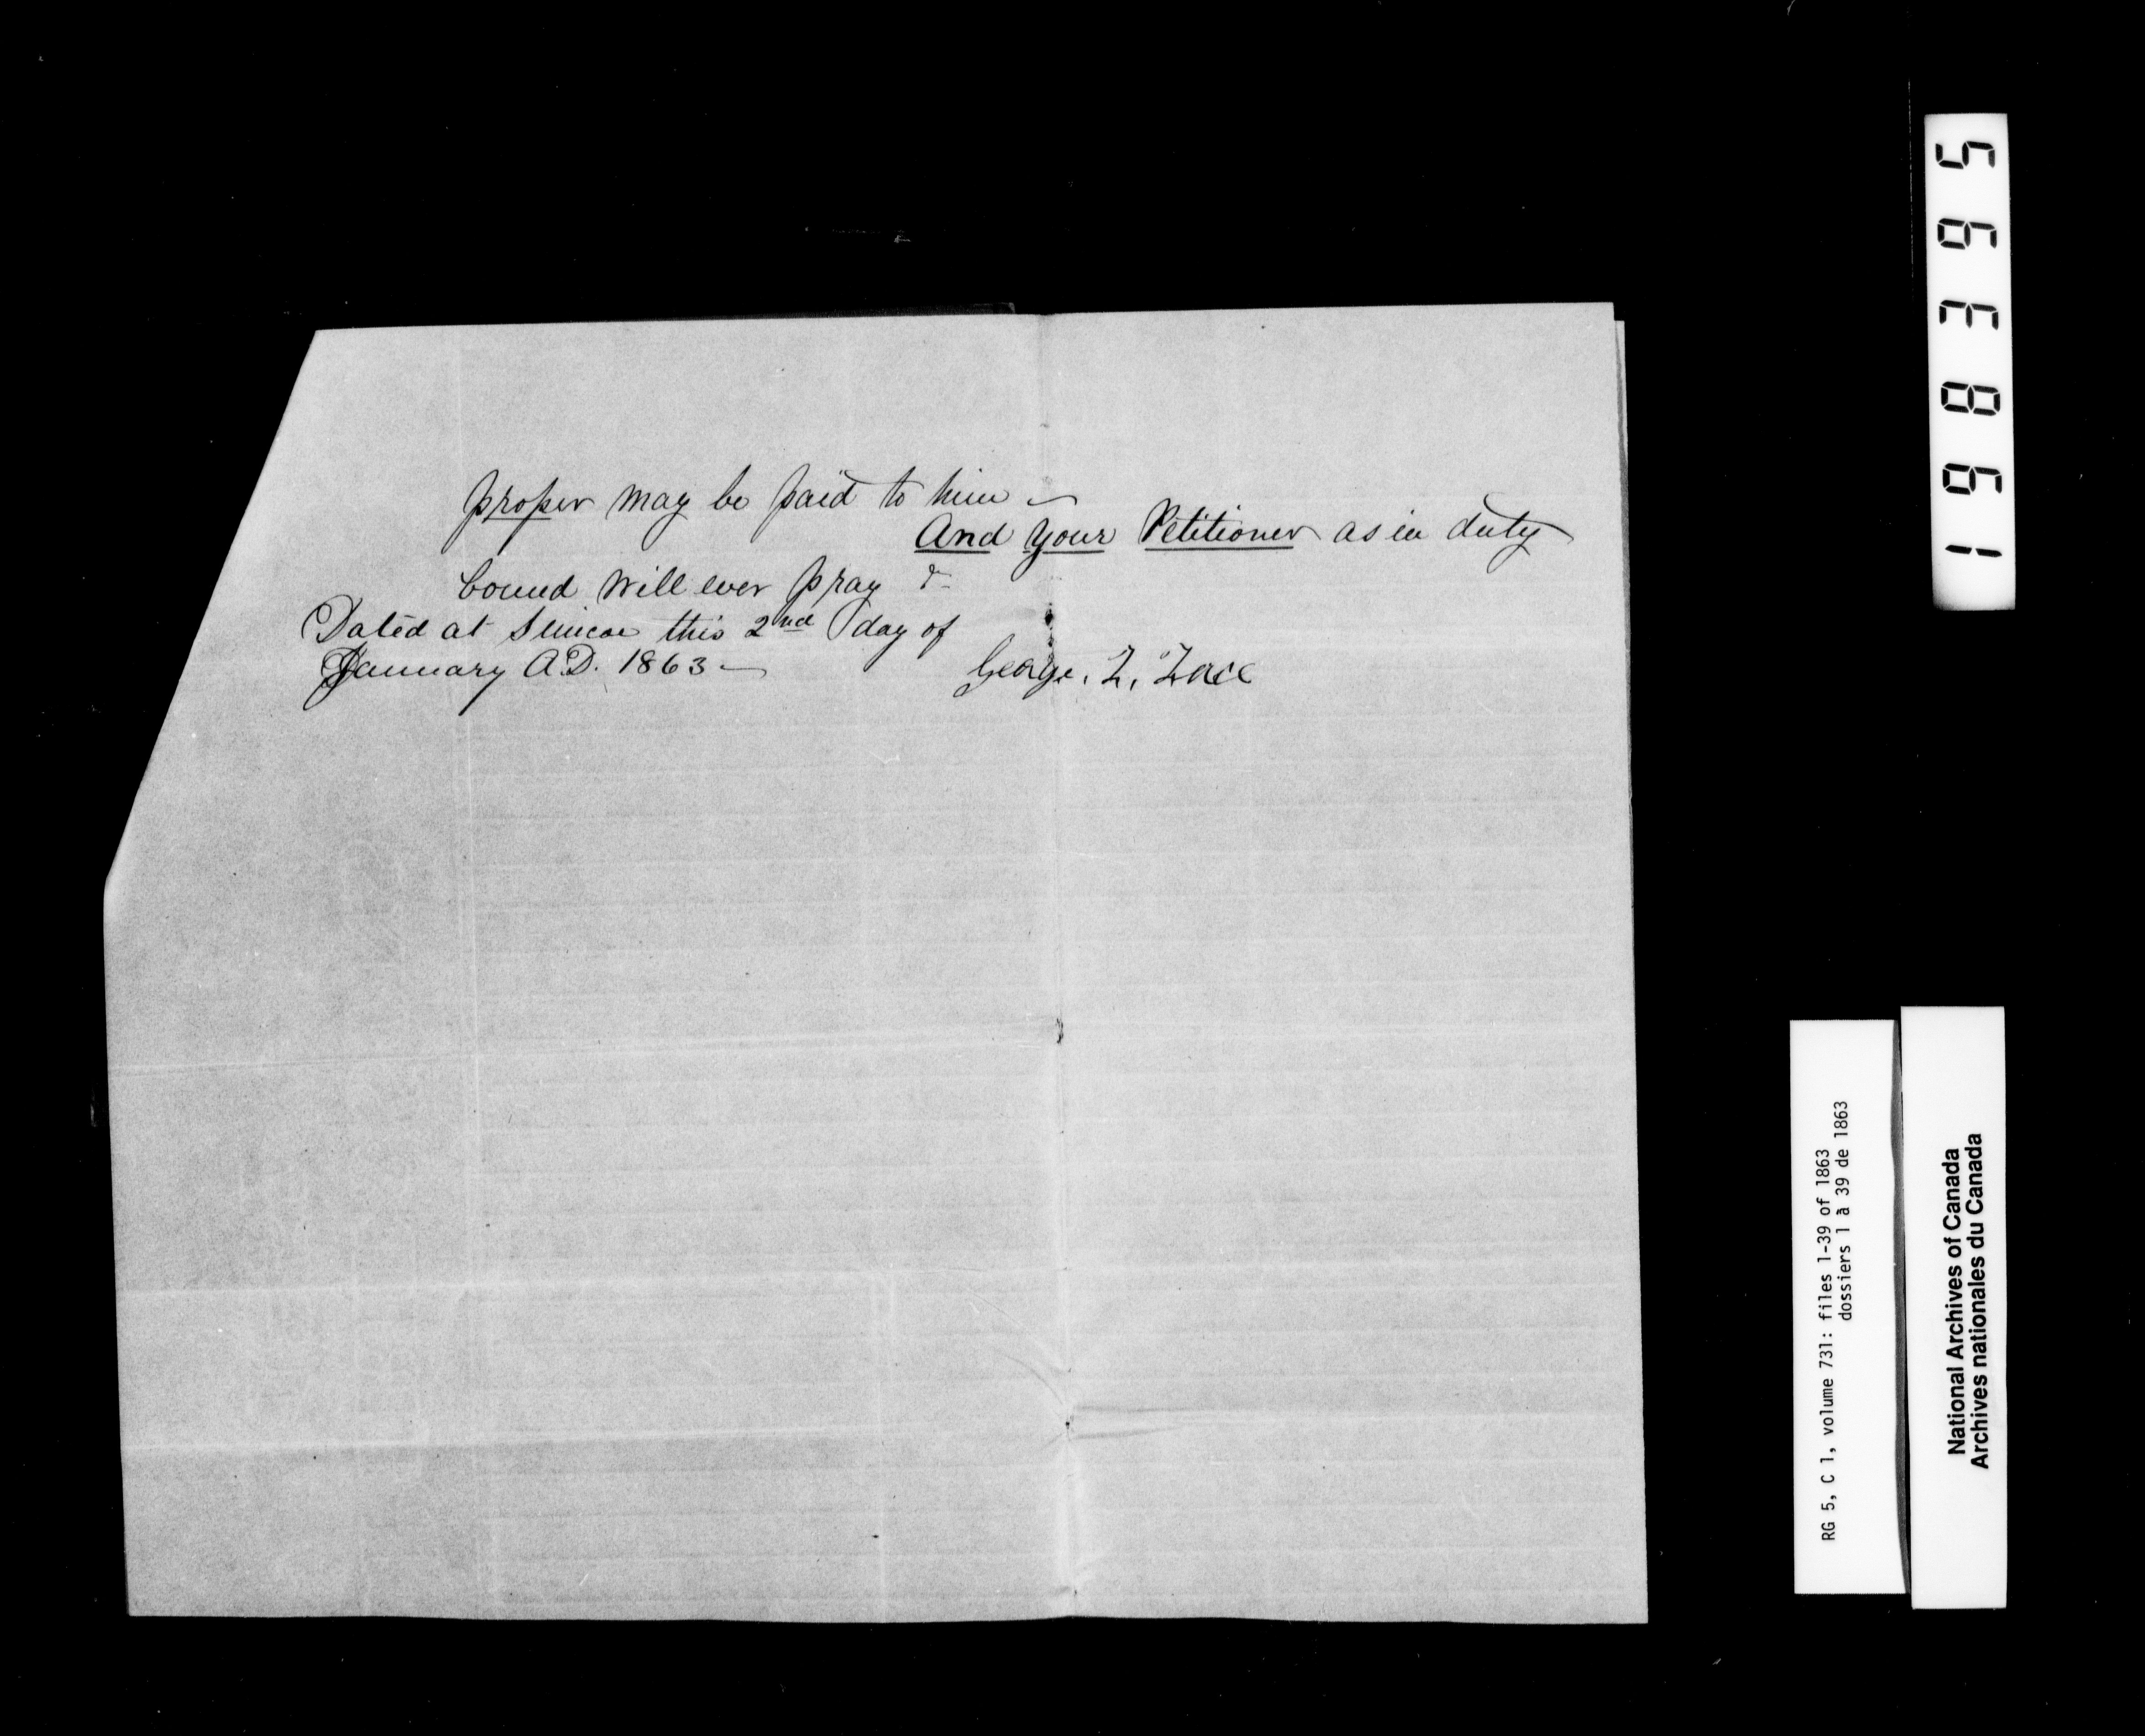 proper may be paid to him —
And Your Petitioner as in duty
bound will ever pray &
Dated at Simcoe this 2nd day of
January A.D. 1863 —
George.
198395
RG 5, C 1, volume 731: files 1-39 of 1863
dossiers 1 à 39 de 1863
National Archives of Canada
Archives nationales du Canada